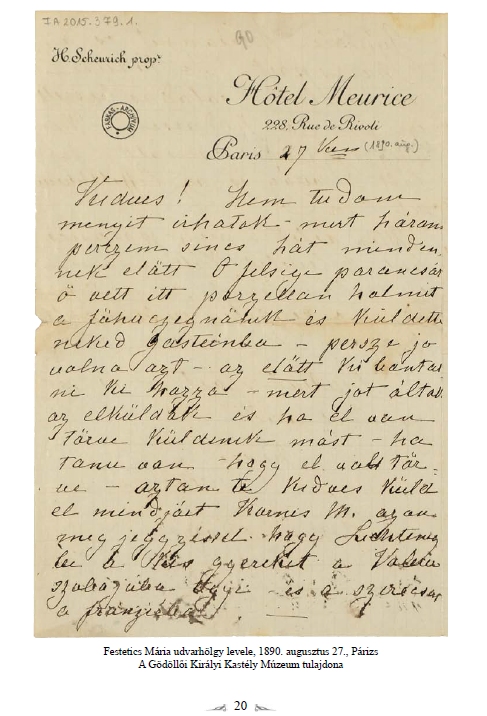 IA 2015.379.1.
90
H. Scheurich propr.
FARKAS-ARCHIVUM
Hôtel Meurice
228, Rue de Rivoli
Paris 27 (1890. aug.)
Kedves! Nem tudom
menyit irhatok – mert három
perczem sincs hát minden
nek elött Ő felsége parancsár
ő vett itt porzellan holmit
a és küldett
neked Gasteinba – persze jo
volna azt – az elött ki bonta
ni ki hozza – mert jot áll
az elküldök és ha el van
törve küldenek mást – ha
tanu van hogy el volt tör-
ve – aztan te kedves küld
el mindjáit Kornis M. azon
meg jegyzéssel hogy
be a kis gyereket a
szobájába és a
a
Festetics Mária udvarhölgy levele, 1890. augusztus 27., Párizs
A Gödöllői Királyi Kastély Múzeum tulajdona
20